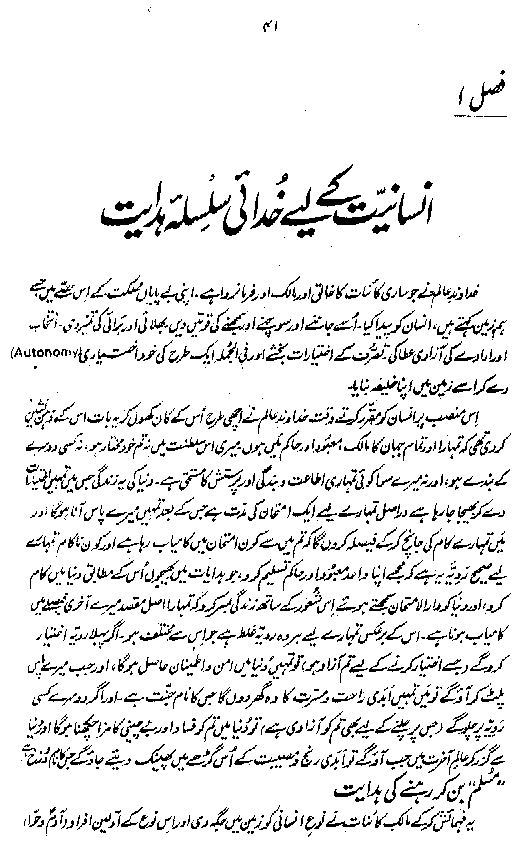 ۴۱
فصل ۱
انسانیت کے لیے خدائی سلسلۂ ہدایت
خداوندِ عالم نے جو ساری کائنات کا خالق اور مالک اور فرمانروا ہے۔ اپنی بے پایاں مملکت کے اس حصے میں جسے
ہم زمین کہتے ہیں، انسان کو پیدا کیا۔ اُسے جاننے اور سوچنے اور سمجھنے کی قوتیں دیں، بھلائی اور برائی کی تمیز دی۔ انتخاب
اور ارادے کی آزادی عطا کی تصرف کے اختیارات بخشے اور فی الجملہ ایک طرح کی خود اختیاری (Autonomy)
دے کر اسے زمین میں اپنا خلیفہ بنایا۔
اِس منصب پر انسان کو مقرر کرتے وقت خداوند عالم نے اچھی طرح اُس کے کان کھول کر یہ بات اس کے ذہن نشین
کر دی تھی کہ تمہارا اور تمام جہان کا مالک، معبود اور حاکم میں ہوں، میری اس سلطنت میں نہ تم خود مختار ہو، نہ کسی دوسرے
کے بندے ہو، اور نہ میرے سوا کوئی تمہاری اطاعت و بندگی اور پرستش کا مستحق ہے۔ دنیا کی یہ زندگی جس میں تمہیں اختیارات
دے کر بھیجا جا رہا ہے دراصل تمہارے لیے ایک امتحان کی مدت ہے جس کے بعد تمہیں میرے پاس آنا ہوگا اور
میں تمہارے کام کی جانچ کر کے فیصلہ کروں گا کہ تم میں سے کون امتحان میں کامیاب رہا ہے اور کون ناکام تمہارے
لیے صحیح رویہ یہ ہے کہ مجھے اپنا واحد معبود اور حاکم تسلیم کرو، جو ہدایات میں بھیجوں اُس کے مطابق دنیا میں کام
کرو، اور دنیا کو دار الامتحان سمجھتے ہوئے اِس شعور کے ساتھ زندگی بسر کرو کہ تمہارا اصل مقصد میرے آخری فیصلے میں
کامیاب ہونا ہے۔ اس کے برعکس تمہارے لیے ہر وہ رویہ غلط ہے جو اس سے مختلف ہو۔ اگر پہلا رویہ اختیار
کرو گے (جسے اختیار کرنے کے لیے تم آزاد ہو) تو تمہیں دُنیا میں امن و اطمینان حاصل ہوگا، اور جب میرے پاس
پلٹ کر آؤ گے تو میں تمہیں ابدی راحت و مسرت کا وہ گھر دوں گا جس کا نام جنّت ہے۔ اور اگر دوسرے کسی
رویہ پر چلو گے (جس پر چلنے کے لیے بھی تم کو آزادی ہے)، تو دُنیا میں تم کو فساد اور بے چینی کا مزا چکھنا ہوگا اور دُنیا
سے گزر کر عالمِ آخرت میں جب آؤ گے تو ابدی رنج و مصیبت کے اُس گڑھے میں پھینک دیے جاؤ گے جس کا نام دوزخ ہے
"مُسلم" بن کر رہنے کی ہدایت
یہ فہمائش کر کے مالک کائنات نے نوع انسانی کو زمین میں جگہ دی اور اس نوع کے اولین افراد (آدمؑ و حوّا)